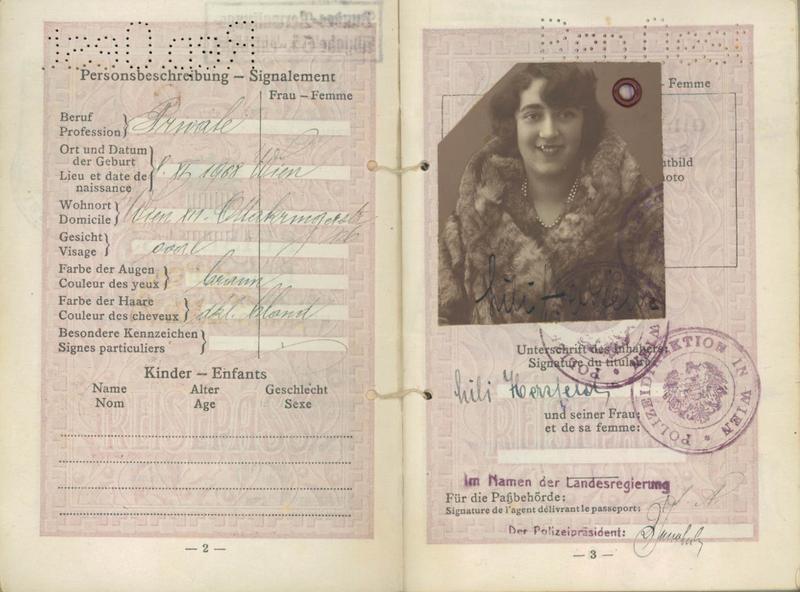 Personsbeschreibung – Signalement
Frau – Femme
Beruf
Profession
Private
Ort und Datum
der Geburt
Lieu et date de
naissance
XI 1908 Wien
Wohnort
Domicile
Wien XVI. Ottakringerstr
Gesicht
Visage
oval
Farbe der Augen
Couleur des yeux
braun
Farbe der Haare
Couleur des cheveux
dkl. blond
Besondere Kennzeichen
Signes particuliers
Kinder – Enfants
Name Alter Geschlecht
Nom Age Sexe
— 2 —
– Femme
Lili
Unterschrift des Inhabers:
Signature du titulaire
POLIZEIDIREKTION IN WIEN
Lili Herzfeld
und seiner Frau:
et de sa femme:
Im Namen der Landesregierung
Für die Paßbehörde:
Signature de l'agent délivrant le passeport:
Der Polizeipräsident:
— 3 —